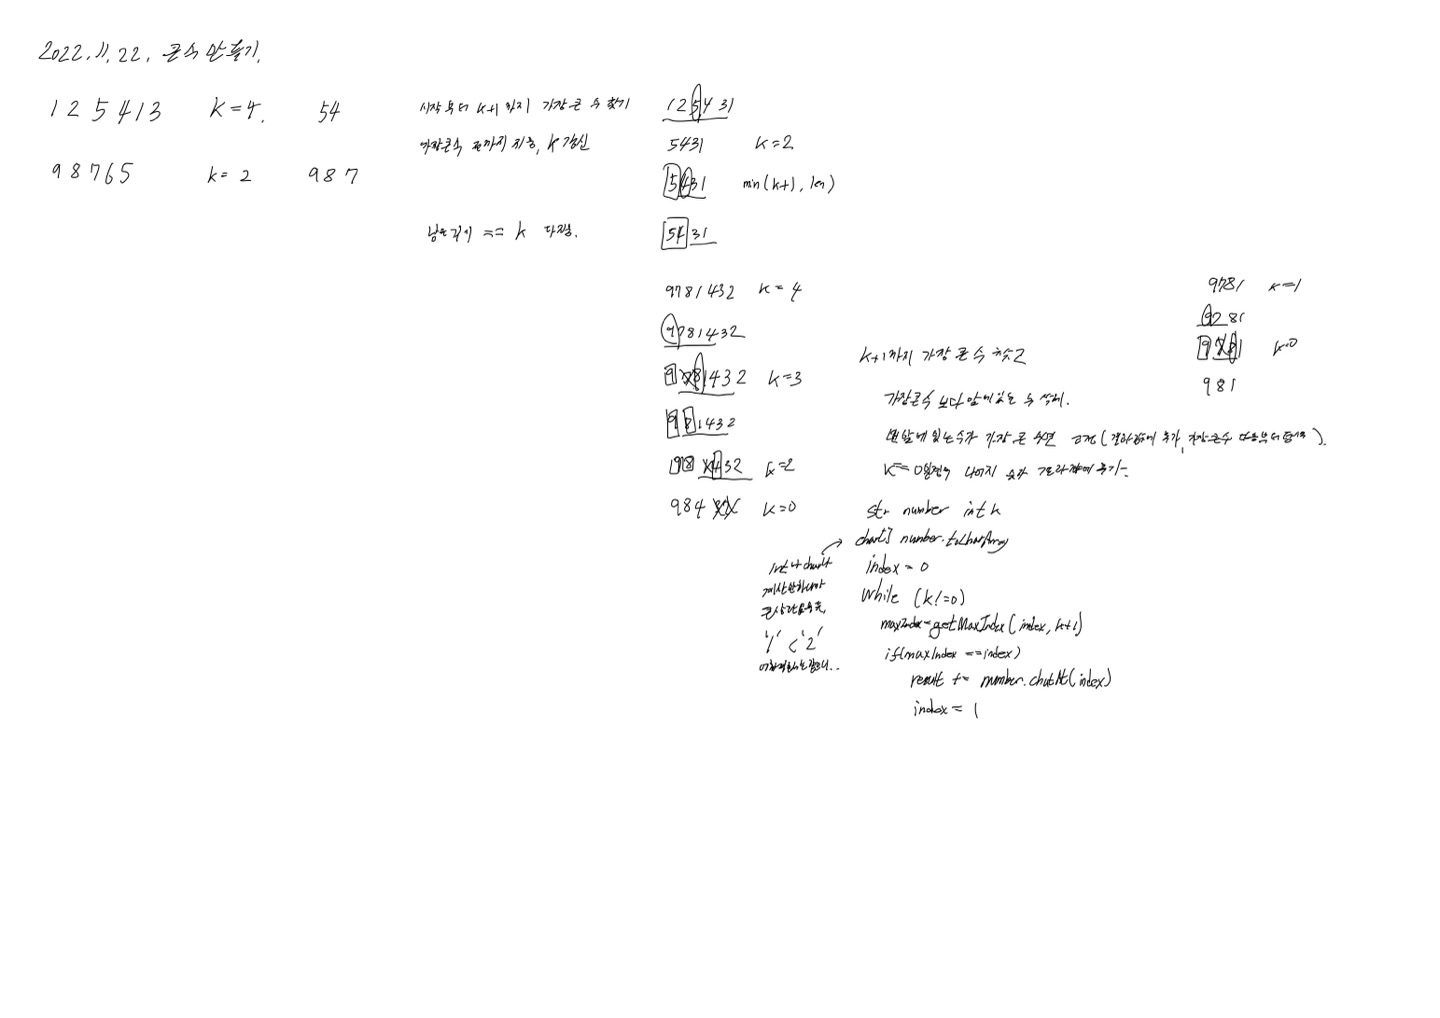 2022.11.22. 큰 수 만들기.
125413 k=4. 54
98765 k=2 987
시작부터 k+1까지 가장 큰 수 찾기
가장큰수 전까지 지움, k 갱신
남은 길이 == k
125431
5431 k=2
5431 min(k+1, len)
5431
9781432 k=4
9781432
9781432 k=3
981432
981432 k=2
98432 k=0
9781 k=1
9781
9781 k=0
981
k+1까지 가장 큰 수 찾기
가장큰수 보다 앞에있는 수 삭제.
맨앞에 있는수가 가장 큰 수면 고정(결과값에 추가, 가장큰수 다음부터 탐색).
k==0일경우 나머지 숫자 결과값에 추가
str number int k
char[] number.toCharArray
index = 0
while (k!=0)
maxIndex=getMaxIndex(index, k+1)
if(maxIndex ==index)
result += number.charAt(index)
index = 1
int나 char나
계산안하니까
큰상관없을듯,
'1' < '2'